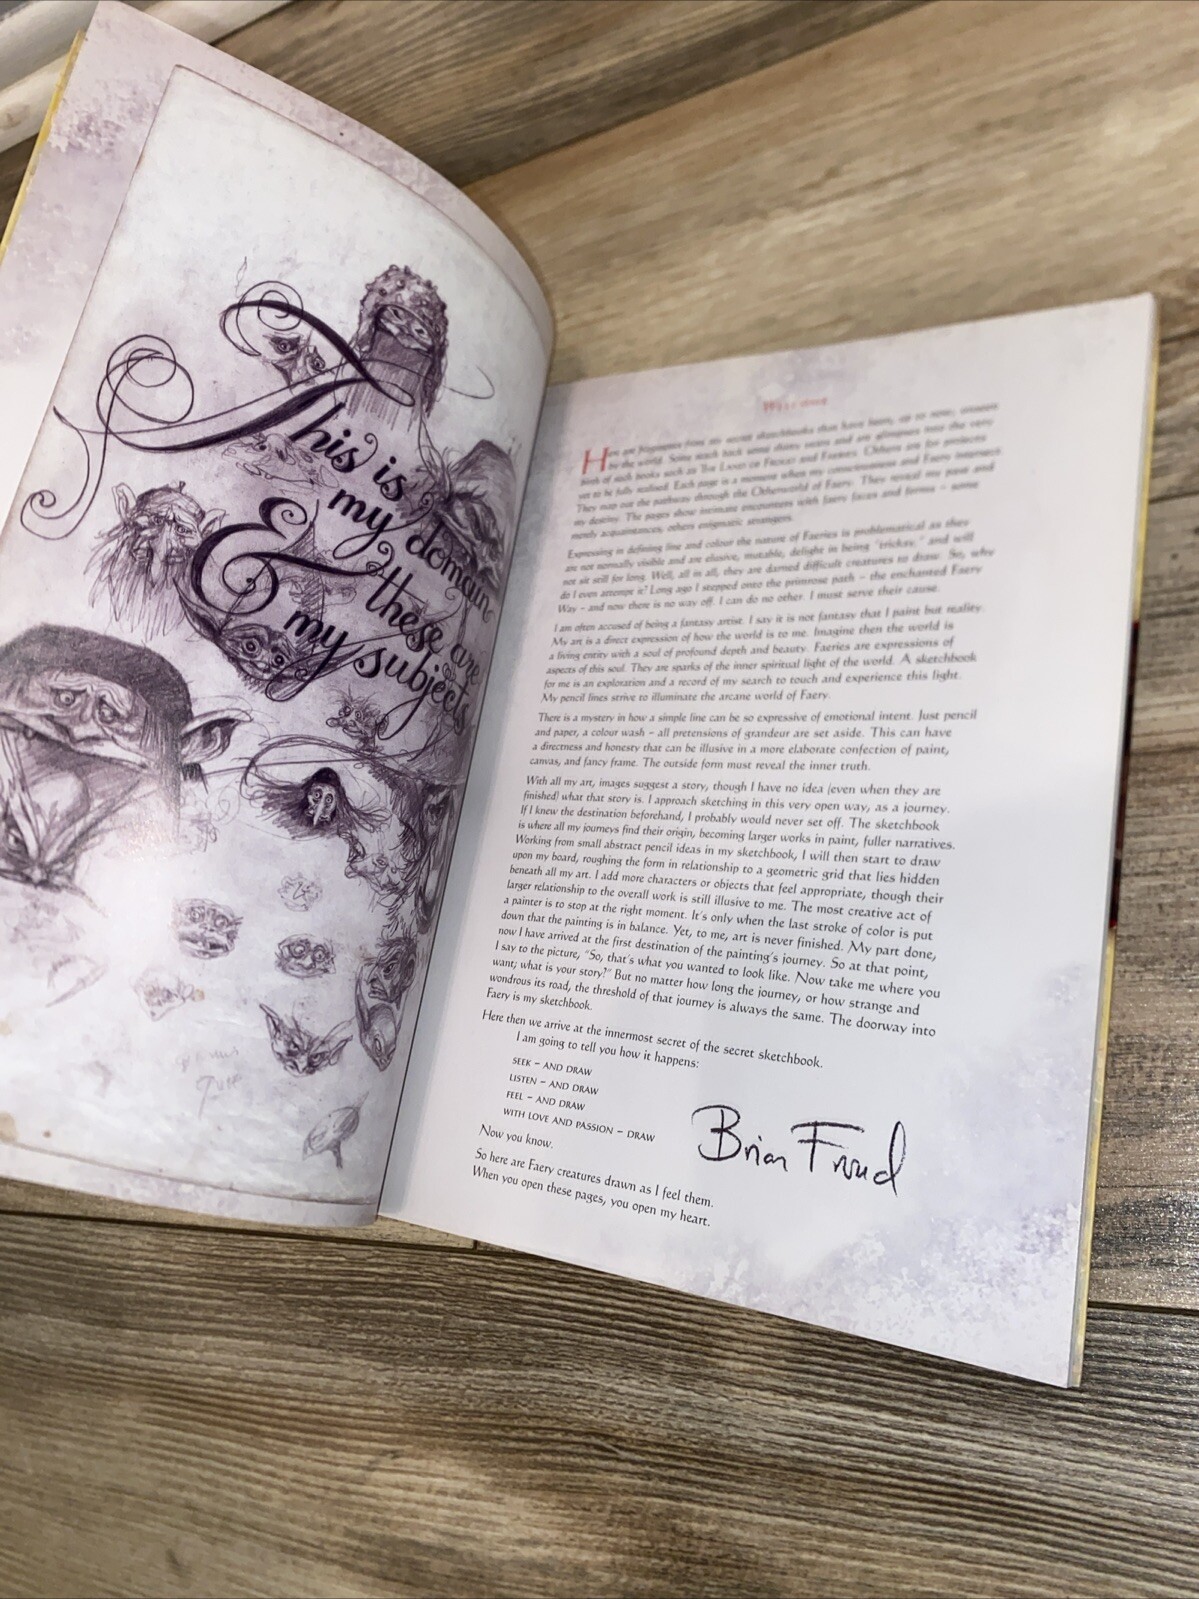 This is
my domain
& these are
my subjects
Welcome
Here are fragments from my secret sketchbooks that have been, up to now, unseen
by the world. Some reach back some thirty years and are glimpses into the very
birth of such books such as The Land of Froud and Faeries. Others are for projects
yet to be fully realised. Each page is a moment when my consciousness and Faery intersect.
They map out the pathway through the Otherworld of Faery. They reveal my past and
my destiny. The pages show intimate encounters with faery faces and forms – some
mostly acquaintances, others enigmatic strangers.
Expressing in defining line and colour the nature of Faeries is problematical as they
are not normally visible and are elusive, mutable, delight in being "tricksy," and will
not sit still for long. Well, all in all, they are darned difficult creatures to draw. So, why
do I even attempt it? Long ago I stepped onto the primrose path – the enchanted Faery
Way – and now there is no way off. I can do no other. I must serve their cause.
I am often accused of being a fantasy artist. I say it is not fantasy that I paint but reality.
My art is a direct expression of how the world is to me. Imagine then the world is
a living entity with a soul of profound depth and beauty. Faeries are expressions of
aspects of this soul. They are sparks of the inner spiritual light of the world. A sketchbook
for me is an exploration and a record of my search to touch and experience this light.
My pencil lines strive to illuminate the arcane world of Faery.
There is a mystery in how a simple line can be so expressive of emotional intent. Just pencil
and paper, a colour wash – all pretensions of grandeur are set aside. This can have
a directness and honesty that can be illusive in a more elaborate confection of paint,
canvas, and fancy frame. The outside form must reveal the inner truth.
With all my art, images suggest a story, though I have no idea (even when they are
finished) what that story is. I approach sketching in this very open way, as a journey.
If I knew the destination beforehand, I probably would never set off. The sketchbook
is where all my journeys find their origin, becoming larger works in paint, fuller narratives.
Working from small abstract pencil ideas in my sketchbook, I will then start to draw
upon my board, roughing the form in relationship to a geometric grid that lies hidden
beneath all my art. I add more characters or objects that feel appropriate, though their
larger relationship to the overall work is still illusive to me. The most creative act of
a painter is to stop at the right moment. It's only when the last stroke of color is put
down that the painting is in balance. Yet, to me, art is never finished. My part done,
now I have arrived at the first destination of the painting's journey. So at that point,
I say to the picture, "So, that's what you wanted to look like. Now take me where you
want; what is your story?" But no matter how long the journey, or how strange and
wondrous its road, the threshold of that journey is always the same. The doorway into
Faery is my sketchbook.
Here then we arrive at the innermost secret of the secret sketchbook.
I am going to tell you how it happens:
SEEK – AND DRAW
LISTEN – AND DRAW
FEEL – AND DRAW
WITH LOVE AND PASSION – DRAW
Now you know.
Brian Froud
So here are Faery creatures drawn as I feel them.
When you open these pages, you open my heart.